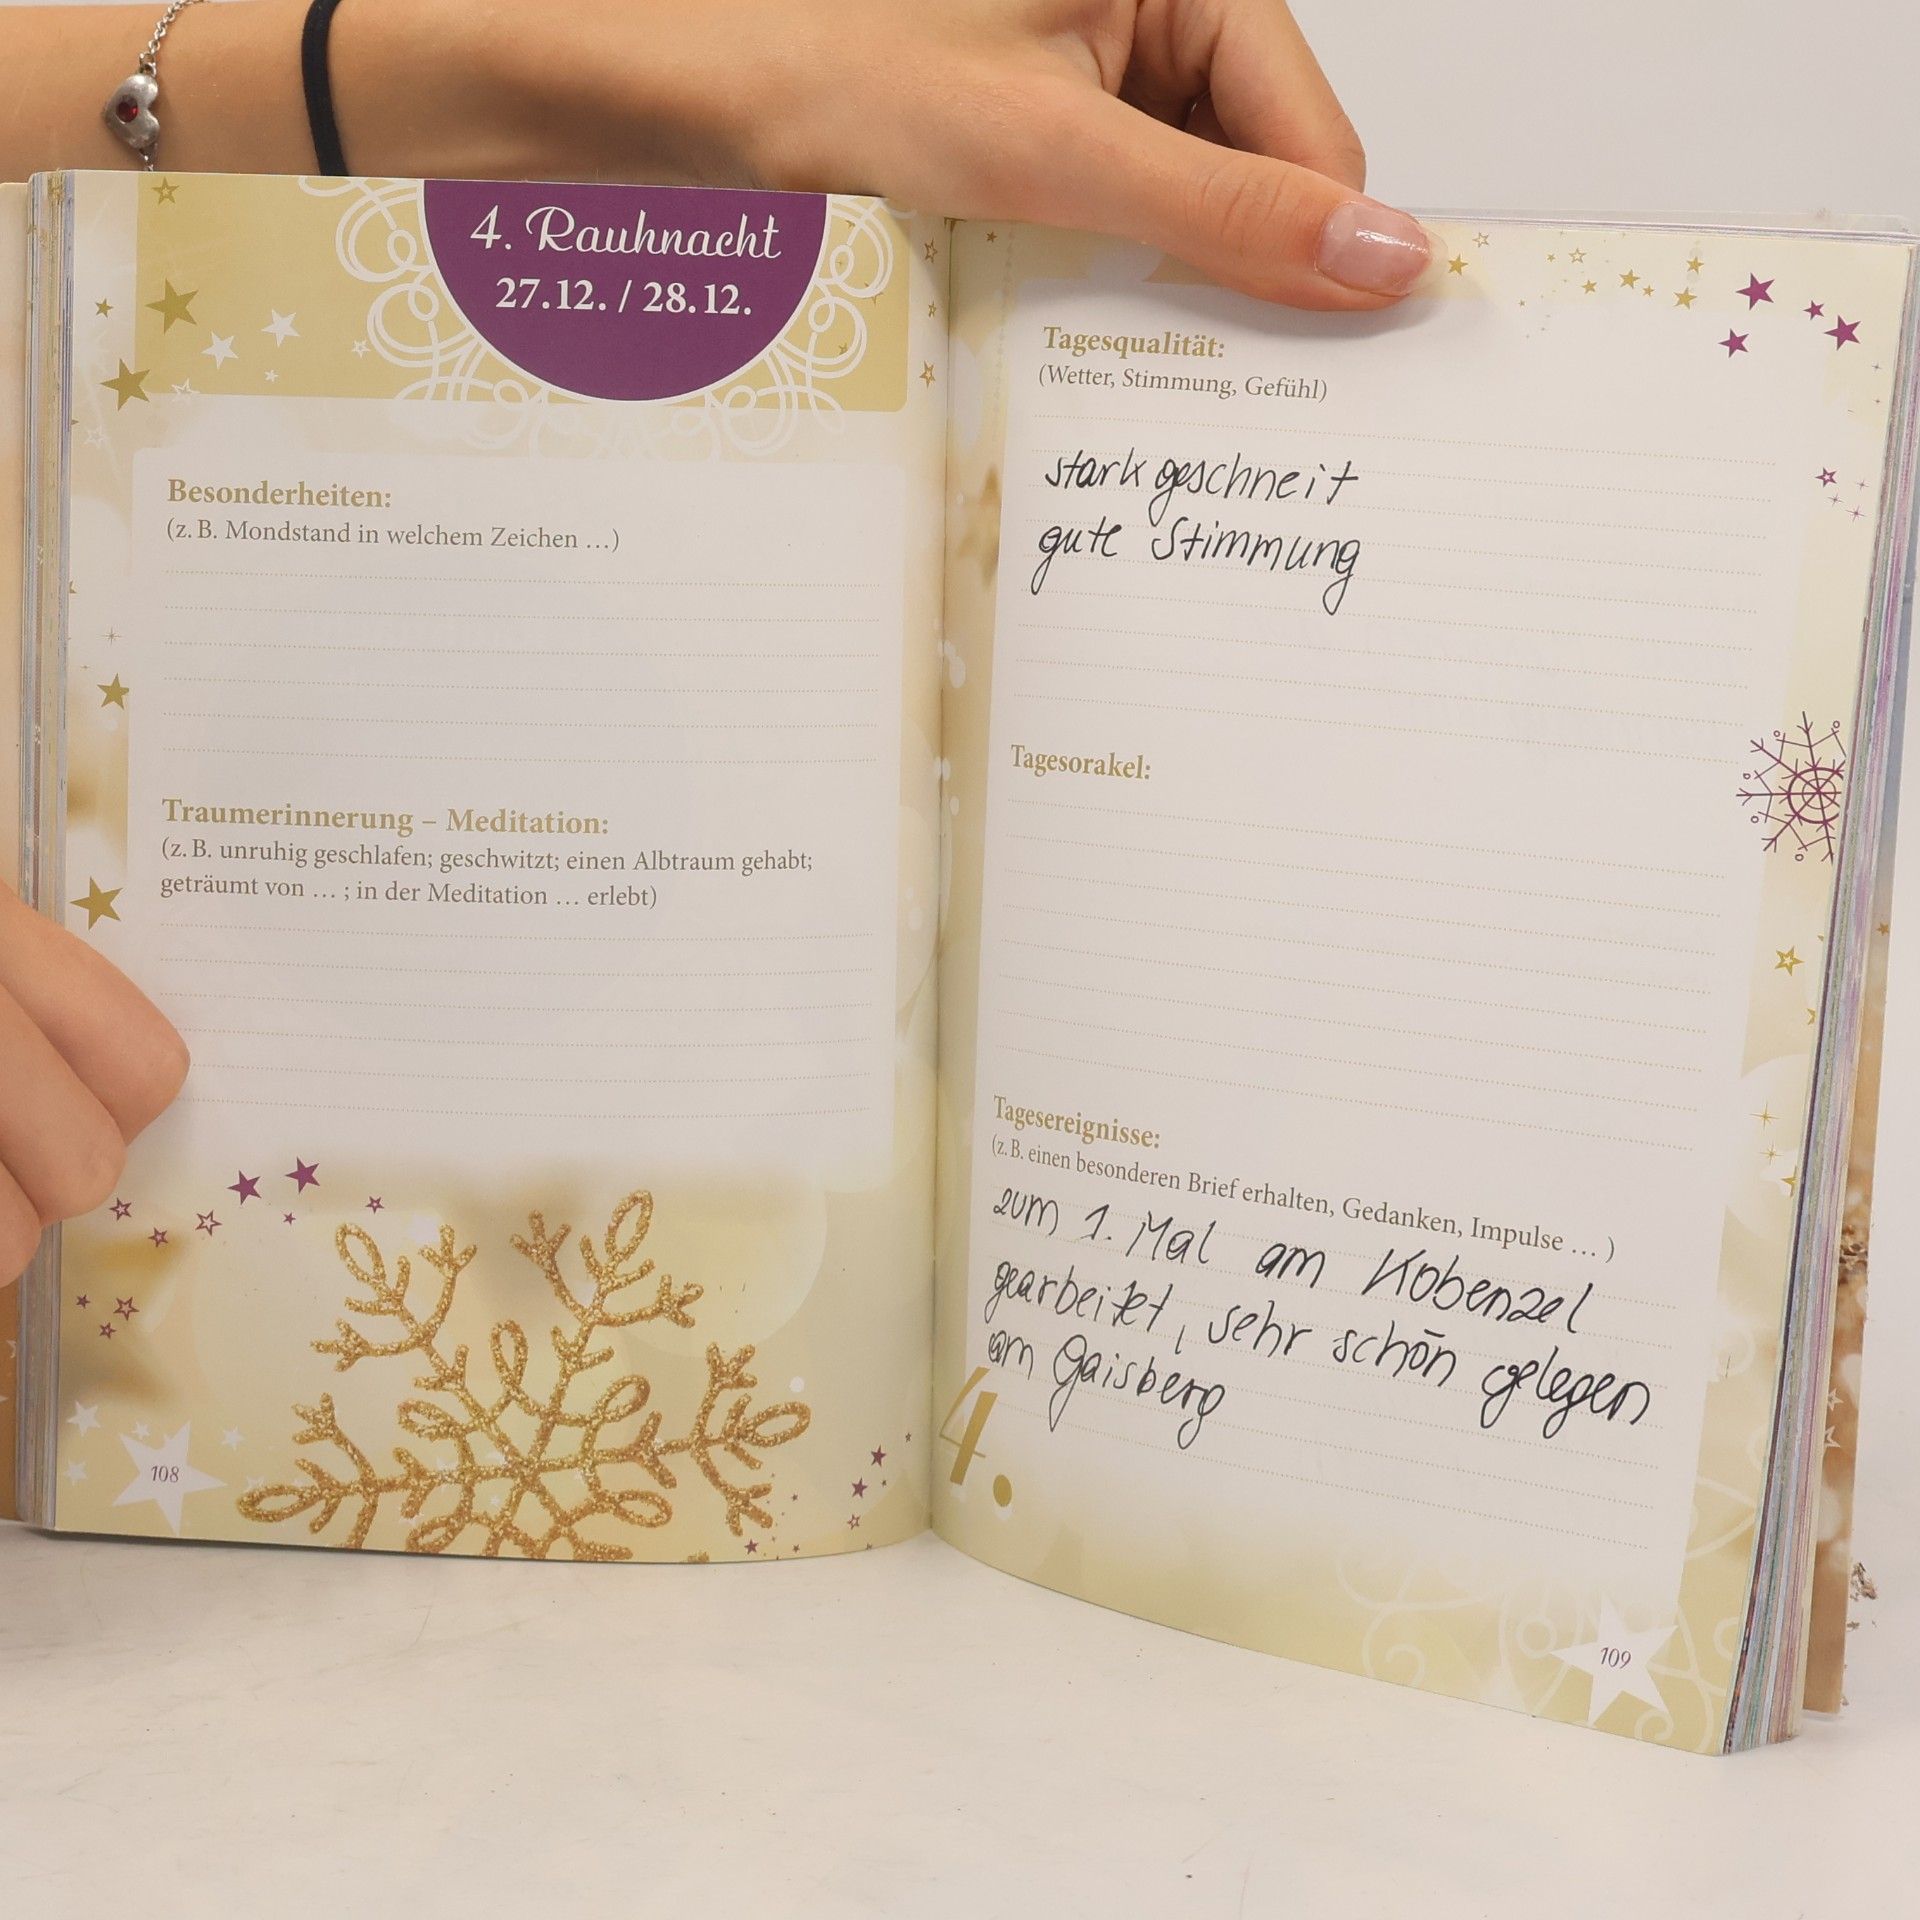 4. Rauhnacht
27.12. / 28.12.
Besonderheiten:
(z. B. Mondstand in welchem Zeichen …)
Traumerinnerung – Meditation:
(z. B. unruhig geschlafen; geschwitzt; einen Albtraum gehabt;
geträumt von … ; in der Meditation … erlebt)
108
Tagesqualität:
(Wetter, Stimmung, Gefühl)
stark geschneit
gute Stimmung
Tagesorakel:
Tagesereignisse:
(z. B. einen besonderen Brief erhalten, Gedanken, Impulse … )
zum 1. Mal am Kobenzel
gearbeitet, sehr schön gelegen
am Gaisberg
4.
109